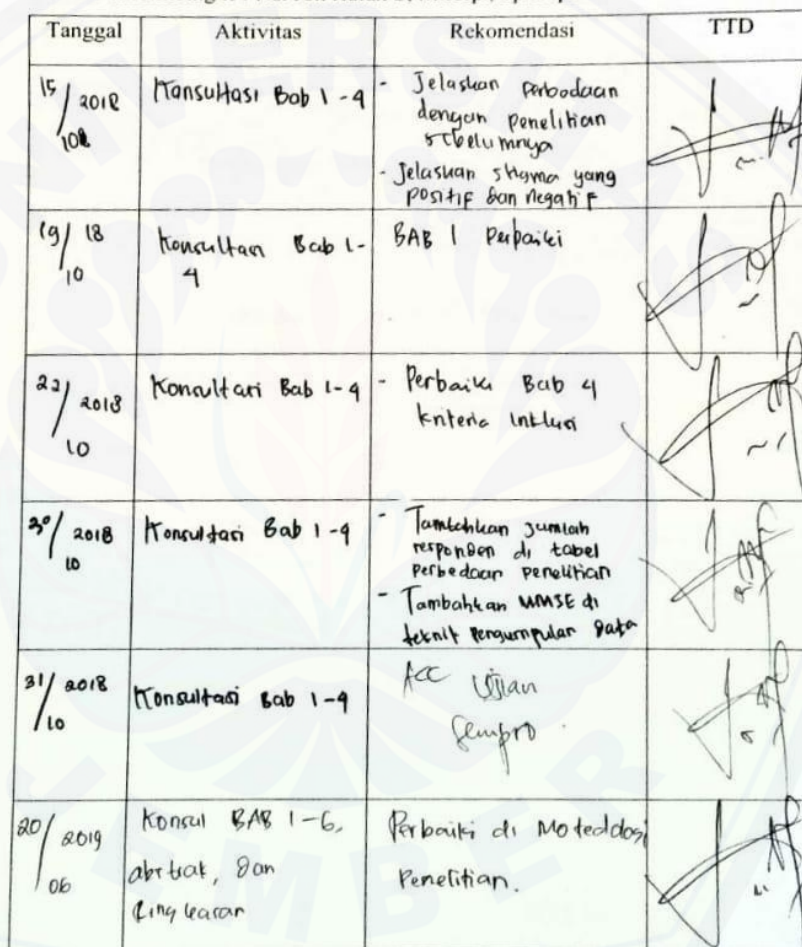 Tanggal Aktivitas Rekomendasi TTD
15/10 2018 Konsultasi Bab 1-4 - Jelaskan perbedaan
dengan penelitian
sebelumnya
- Jelaskan stigma yang
positif dan negatif
19/10 18 Konsultasi Bab 1-
4
BAB 1 Perbaiki
22/10 2018 Konsultasi Bab 1-4 - Perbaiki Bab 4
kriteria inklusi
30/10 2018 Konsultasi Bab 1-4 - Tambahkan jumlah
responden di tabel
perbedaan penelitian
- Tambahkan MMSE di
teknik pengumpulan data
31/10 2018 Konsultasi Bab 1-4 ACC Ujian
Sempro
20/06 2019 Konsul BAB 1-6,
abstrak, dan
Ringkasan
Perbaiki di Moteddosi
Penelitian.
UNIVERSITAS
JEMBER